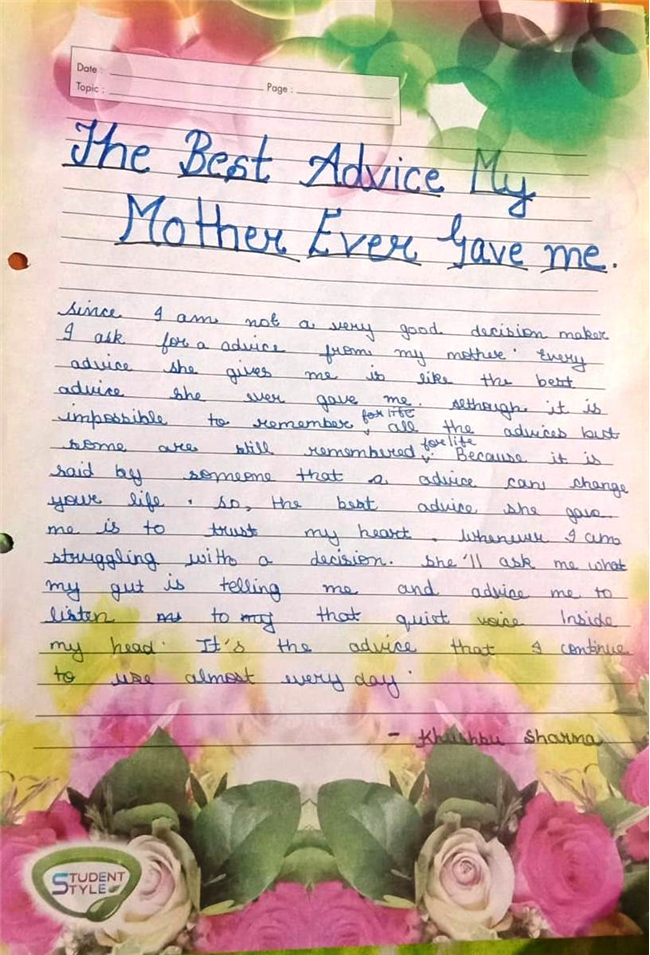 Date :
Topic : Page :
The Best Advice My
Mother Ever Gave me.
since I am not a very good decision maker
I ask for a advice from my mother. Every
advice she gives me is like the best
advice she ever gave me. Although it is
impossible to remember for life all the advices but
some are still remembered for life. Because it is
said by someone that a advice can change
your life. so, the best advice she gave
me is to trust my heart. Whenever I am
struggling with a decision. she'll ask me what
my gut is telling me and advice me to
listen to that quiet voice Inside
my head. It's the advice that I continue
to use almost every day.
- Khushbu Sharma
STUDENT
STYLE